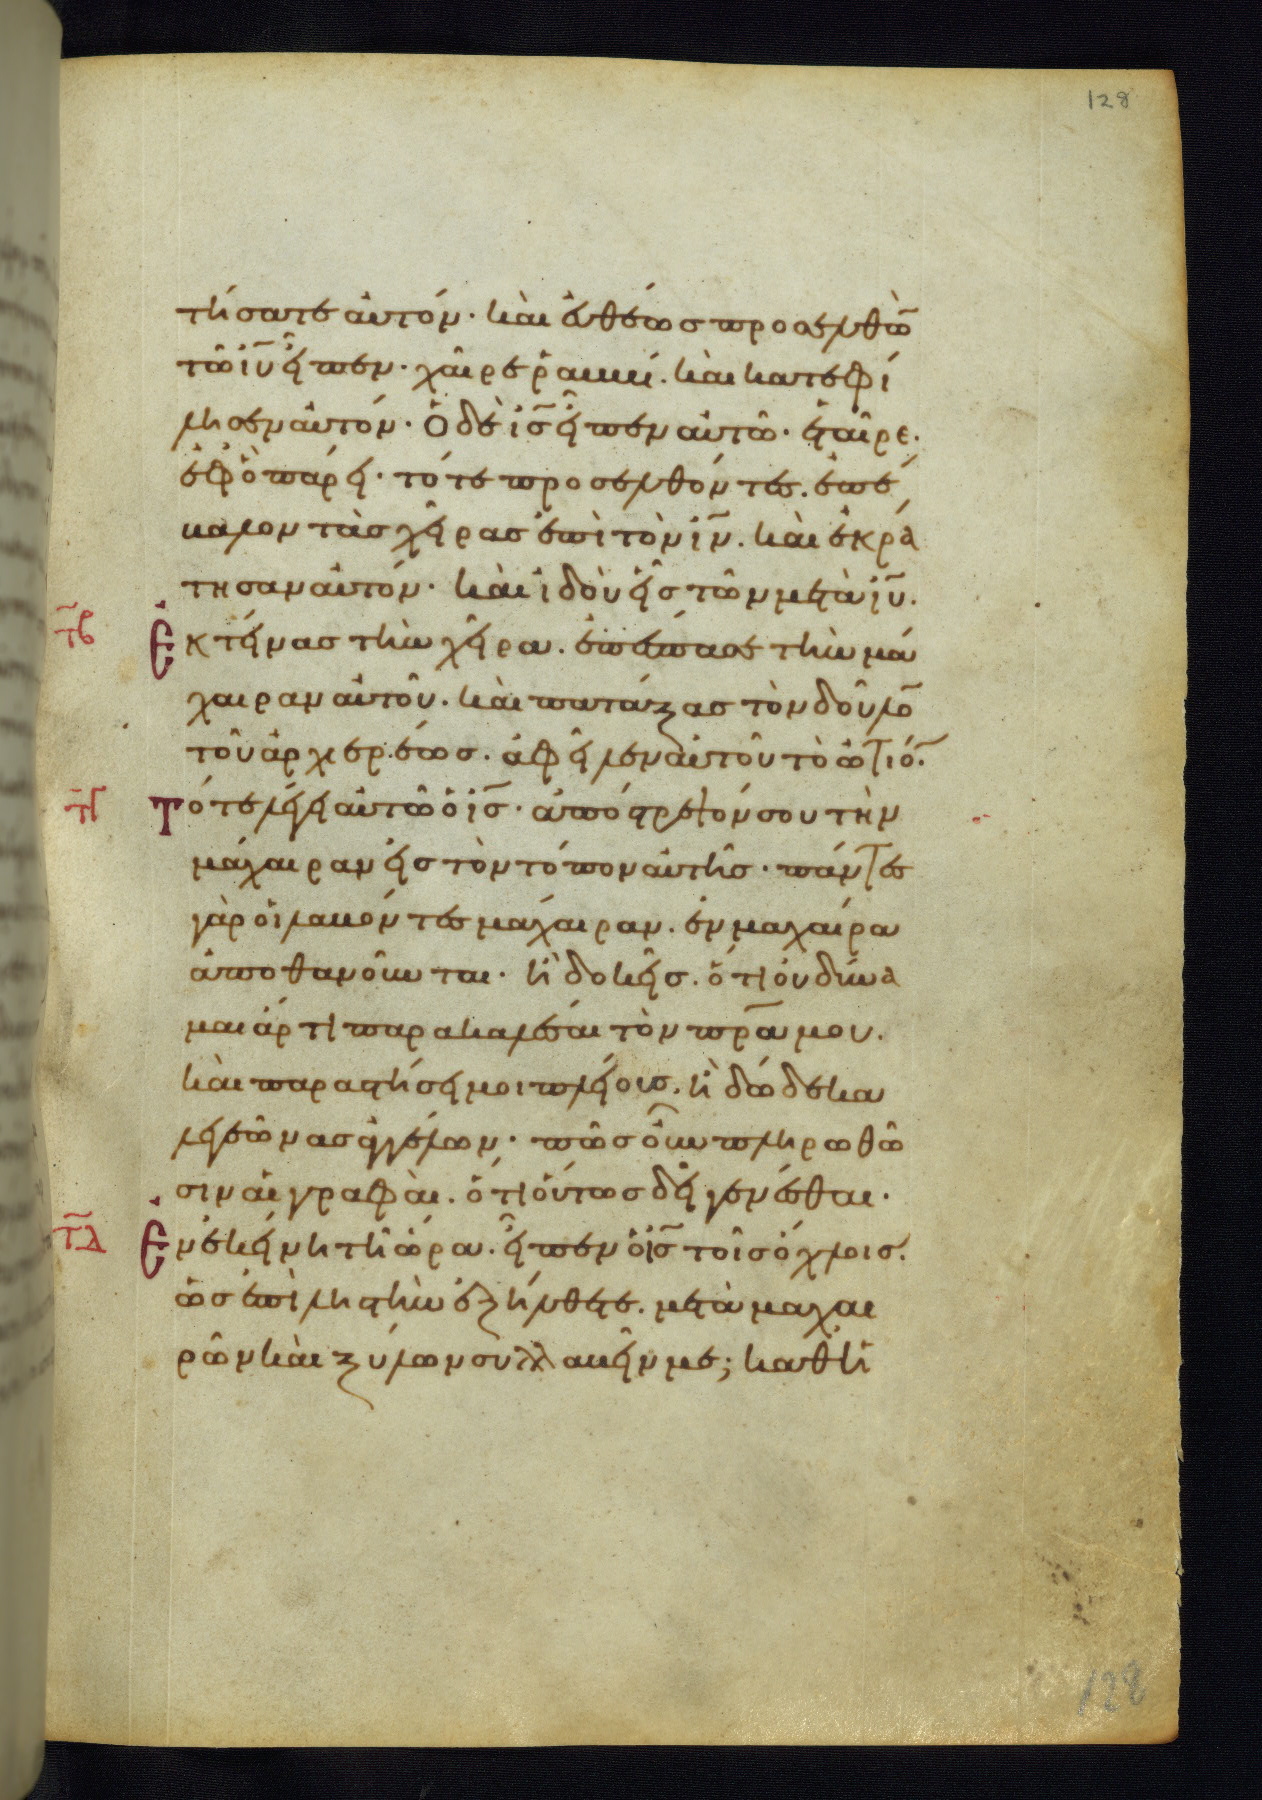 128
τήσατε αὐτόν· καὶ εὐθέως προσελθὼ̄
τῶ ιῡ εἶπεν· χαῖρε ῥαββί· καὶ κατεφί
λησεν αὐτόν· Ὁ δὲ ις̄ εἶπεν αὐτῶ· ἑταῖρε·
ἐφ ὁ πάρει· τότε προσελθόντες· ἐπέ
βαλον τὰς χεῖρας ἐπὶ τὸν ιν̄· καὶ ἐκρά
τησαν αὐτόν· καὶ ἰδοὺ εἷς τῶν μετὰ ιῡ·
τβ̄ Ἐκτείνας τὴν χεῖρα· ἀπέσπασε τὴν μά
χαιραν αὐτοῦ· καὶ πατάξας τὸν δοῦλο̄
τοῦ ἀρχιερέως· ἀφεῖλεν αὐτοῦ τὸ ὠτίο̄·
τγ̄ Τότε λέγει αὐτῶ ὁ ις̄· ἀπόστρεψόν σου τὴν
μάχαιραν εἰς τὸν τόπον αὐτῆς· πάντες
γὰρ οἱ λαβόντες μάχαιραν· ἐν μαχαίρα
ἀποθανοῦνται· ἢ δοκεῖς· ὅτι οὐ δύνα
μαι ἄρτι παρακαλέσαι τὸν πρ̄α μου·
καὶ παραστήσει μοι πλείοις· ἢ δώδεκα
λεγεῶνας ἀγγέλων· πῶς οὖν πληρωθῶ
σιν αἱ γραφαὶ· ὅτι οὕτως δεῖ γενέσθαι·
τδ̄ Ἐν ἐκείνη τῆ ὥρα· εἶπεν ὁ ις̄ τοῖς ὄχλοις·
ὡς ἐπὶ ληστὴν ἐξήλθετε· μετὰ μαχαι
ρῶν καὶ ξύλων συλλαβεῖν με; καθ ἡ
128